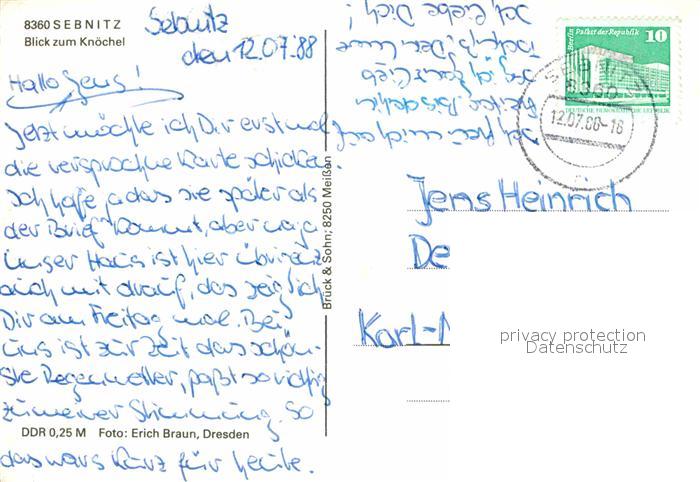 8360 SEBNITZ
Blick zum Knöchel
Sebnitz
den 12.07.88
Hallo Jens!
Jetzt möchte ich Dir erst mal
die versprochne Karte schicken.
Ich hoffe, das sie später als
der Brief kommt, aber naja
Unser Haus ist hier übrigens
auch mit drauf, das zeig ich
Dir am Freitag mal. Bei
uns ist zur Zeit das schön-
ste Regenwetter, paßt so richtig
zu meiner Stimmung. So
DDR 0,25 M Foto: Erich Braun, Dresden
das wars kurz für heute.
Ich freu mich auf
Freitag. Bis dahin
sei ganz lieb
Tschüß, Deine
Ich liebe Dich!
Brück & Sohn; 8250 Meißen
Berlin Palast der Republik 10
DEUTSCHE DEMOKRATISCHE REPUBLIK
SEBNITZ
8360
12.07.88-16
Jens Heinrich
De
Karl-M
privacy protection
Datenschutz